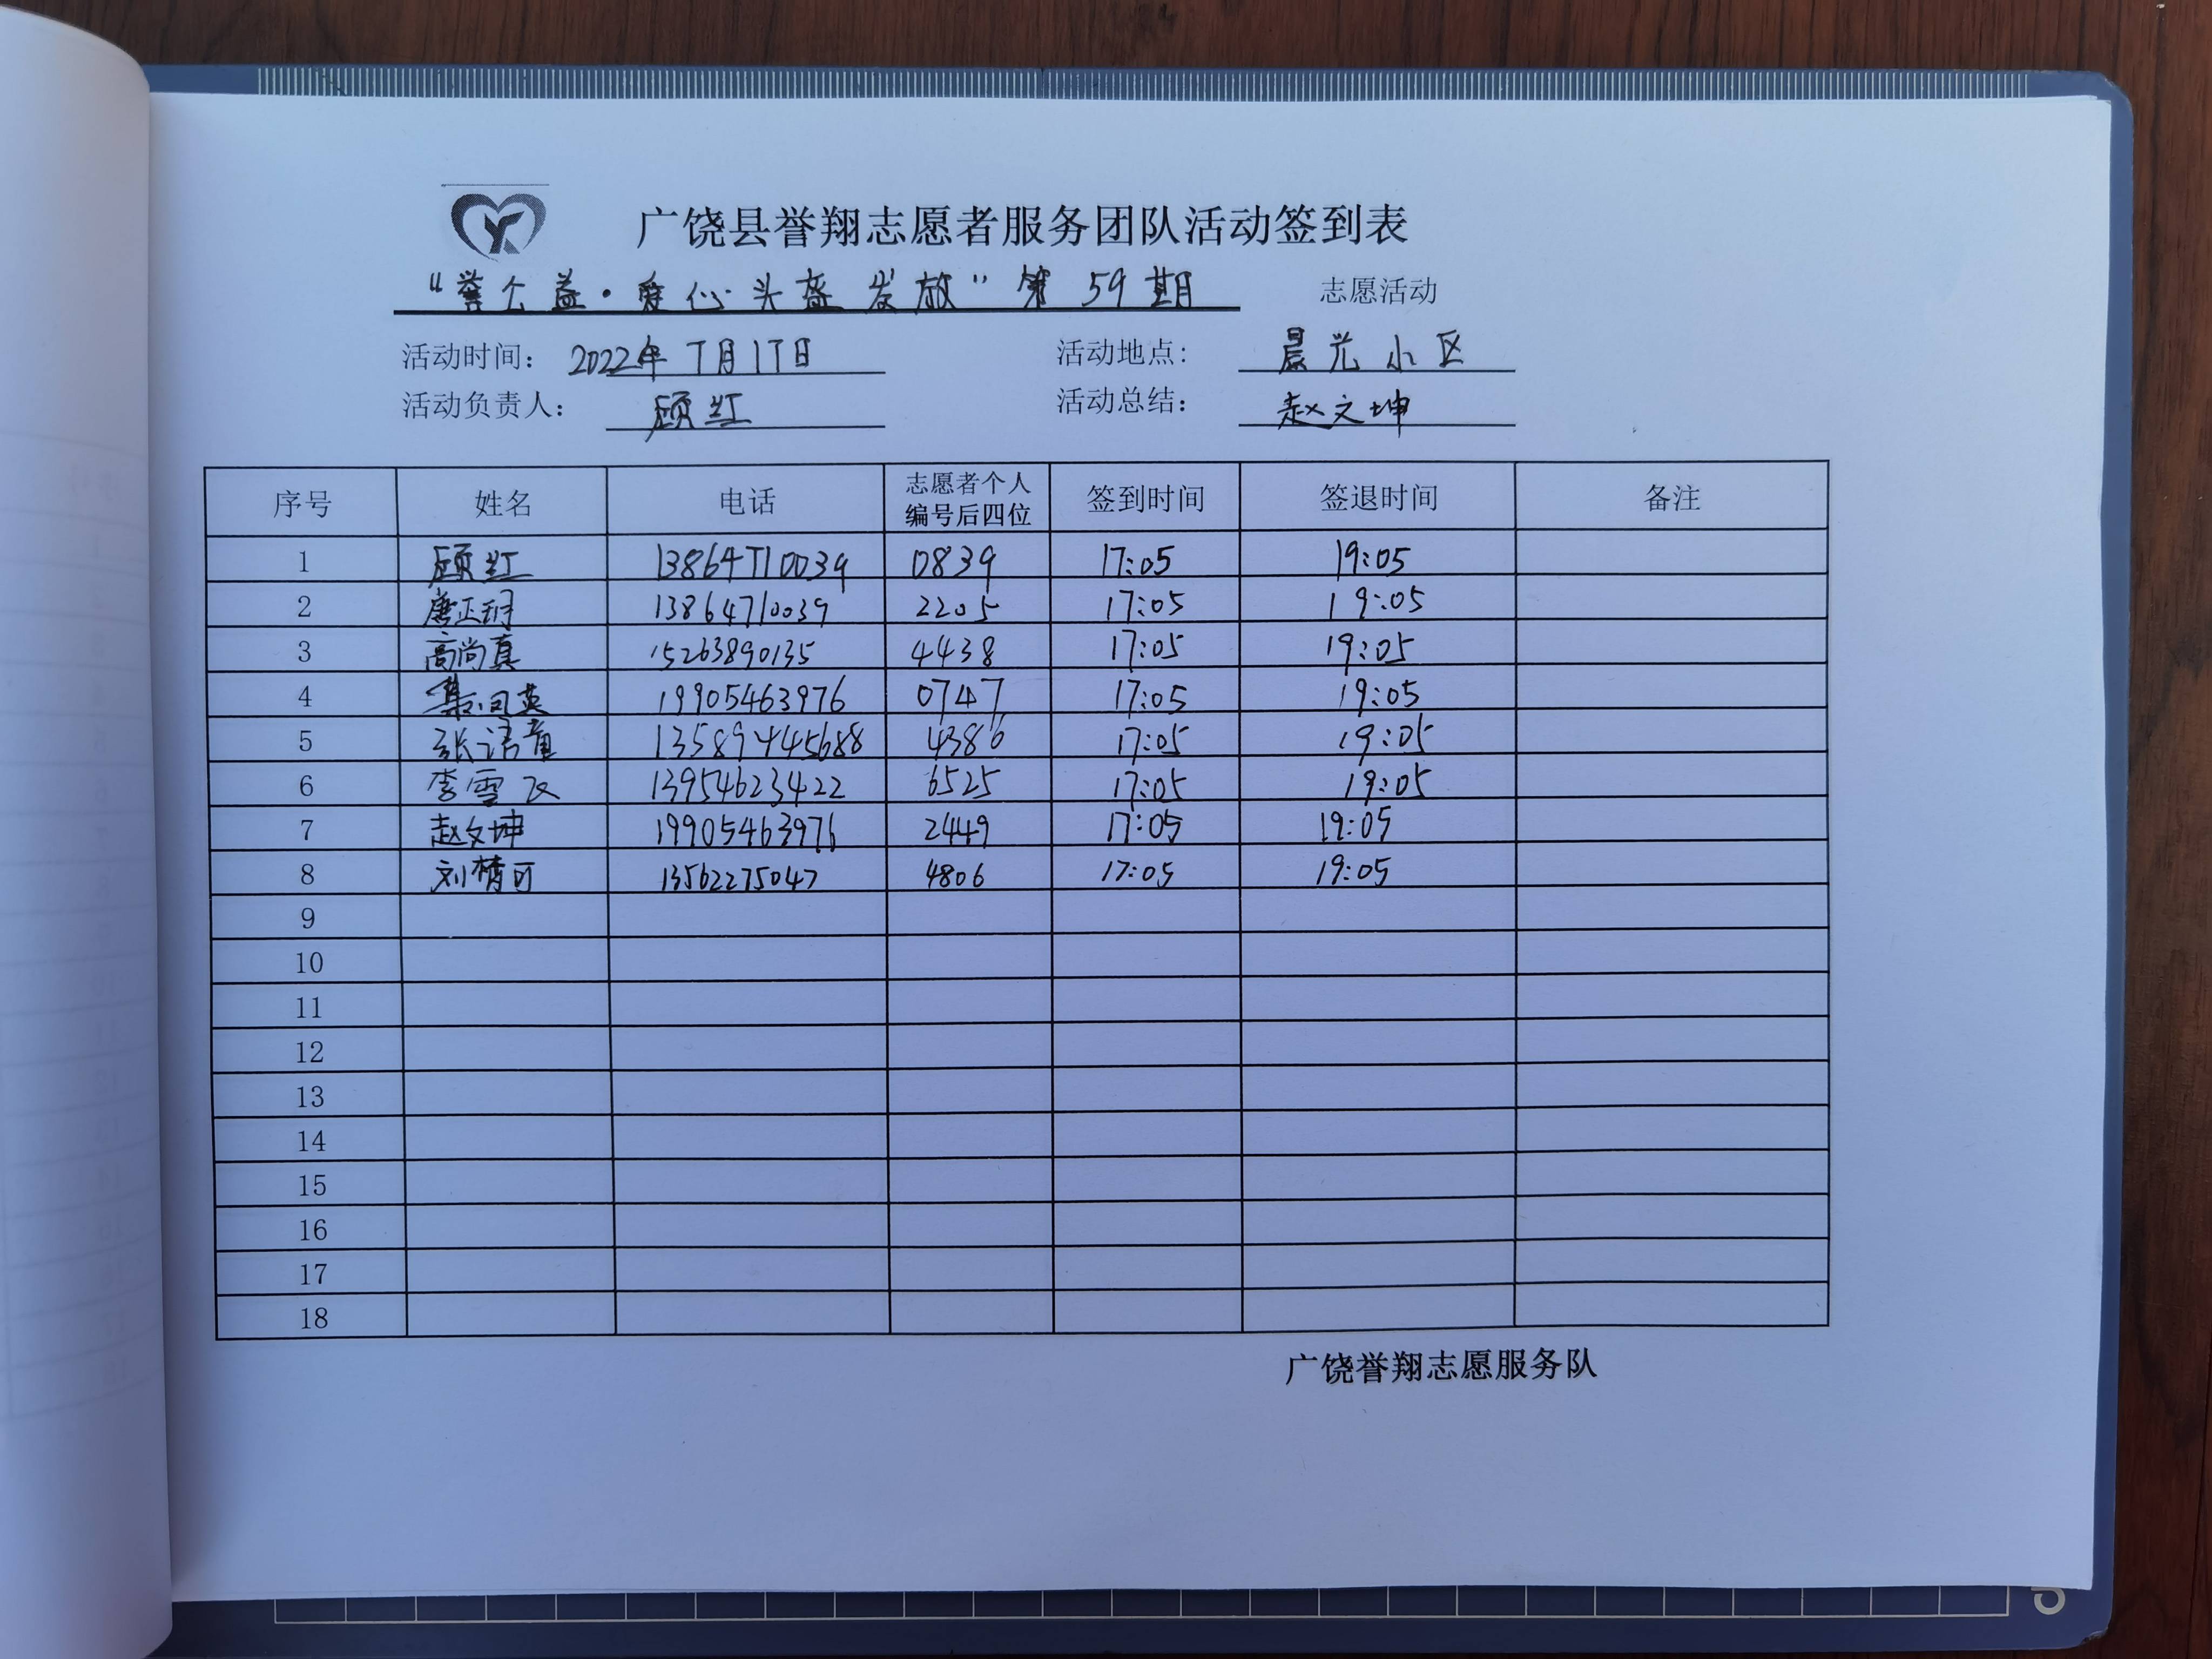 广饶县誉翔志愿者服务团队活动签到表
“誉公益·爱心头盔发放”第59期 志愿活动
活动时间： 2022年7月17日 活动地点： 晨光小区
活动负责人： 顾红 活动总结： 赵文坤
序号 姓名 电话 志愿者个人编号后四位 签到时间 签退时间 备注
1 顾红 13864710039 0839 17:05 19:05
2 唐正 13864710039 2205 17:05 19:05
3 高尚真 15263890135 4438 17:05 19:05
4 19905463976 0747 17:05 19:05
5 张语 4386 17:05 19:05
6 李雪 13954623422 6525 17:05 19:05
7 赵文坤 19905463976 2449 17:05 19:05
8 刘楷可 13562275047 4806 17:05 19:05
9
10
11
12
13
14
15
16
17
18
广饶誉翔志愿服务队